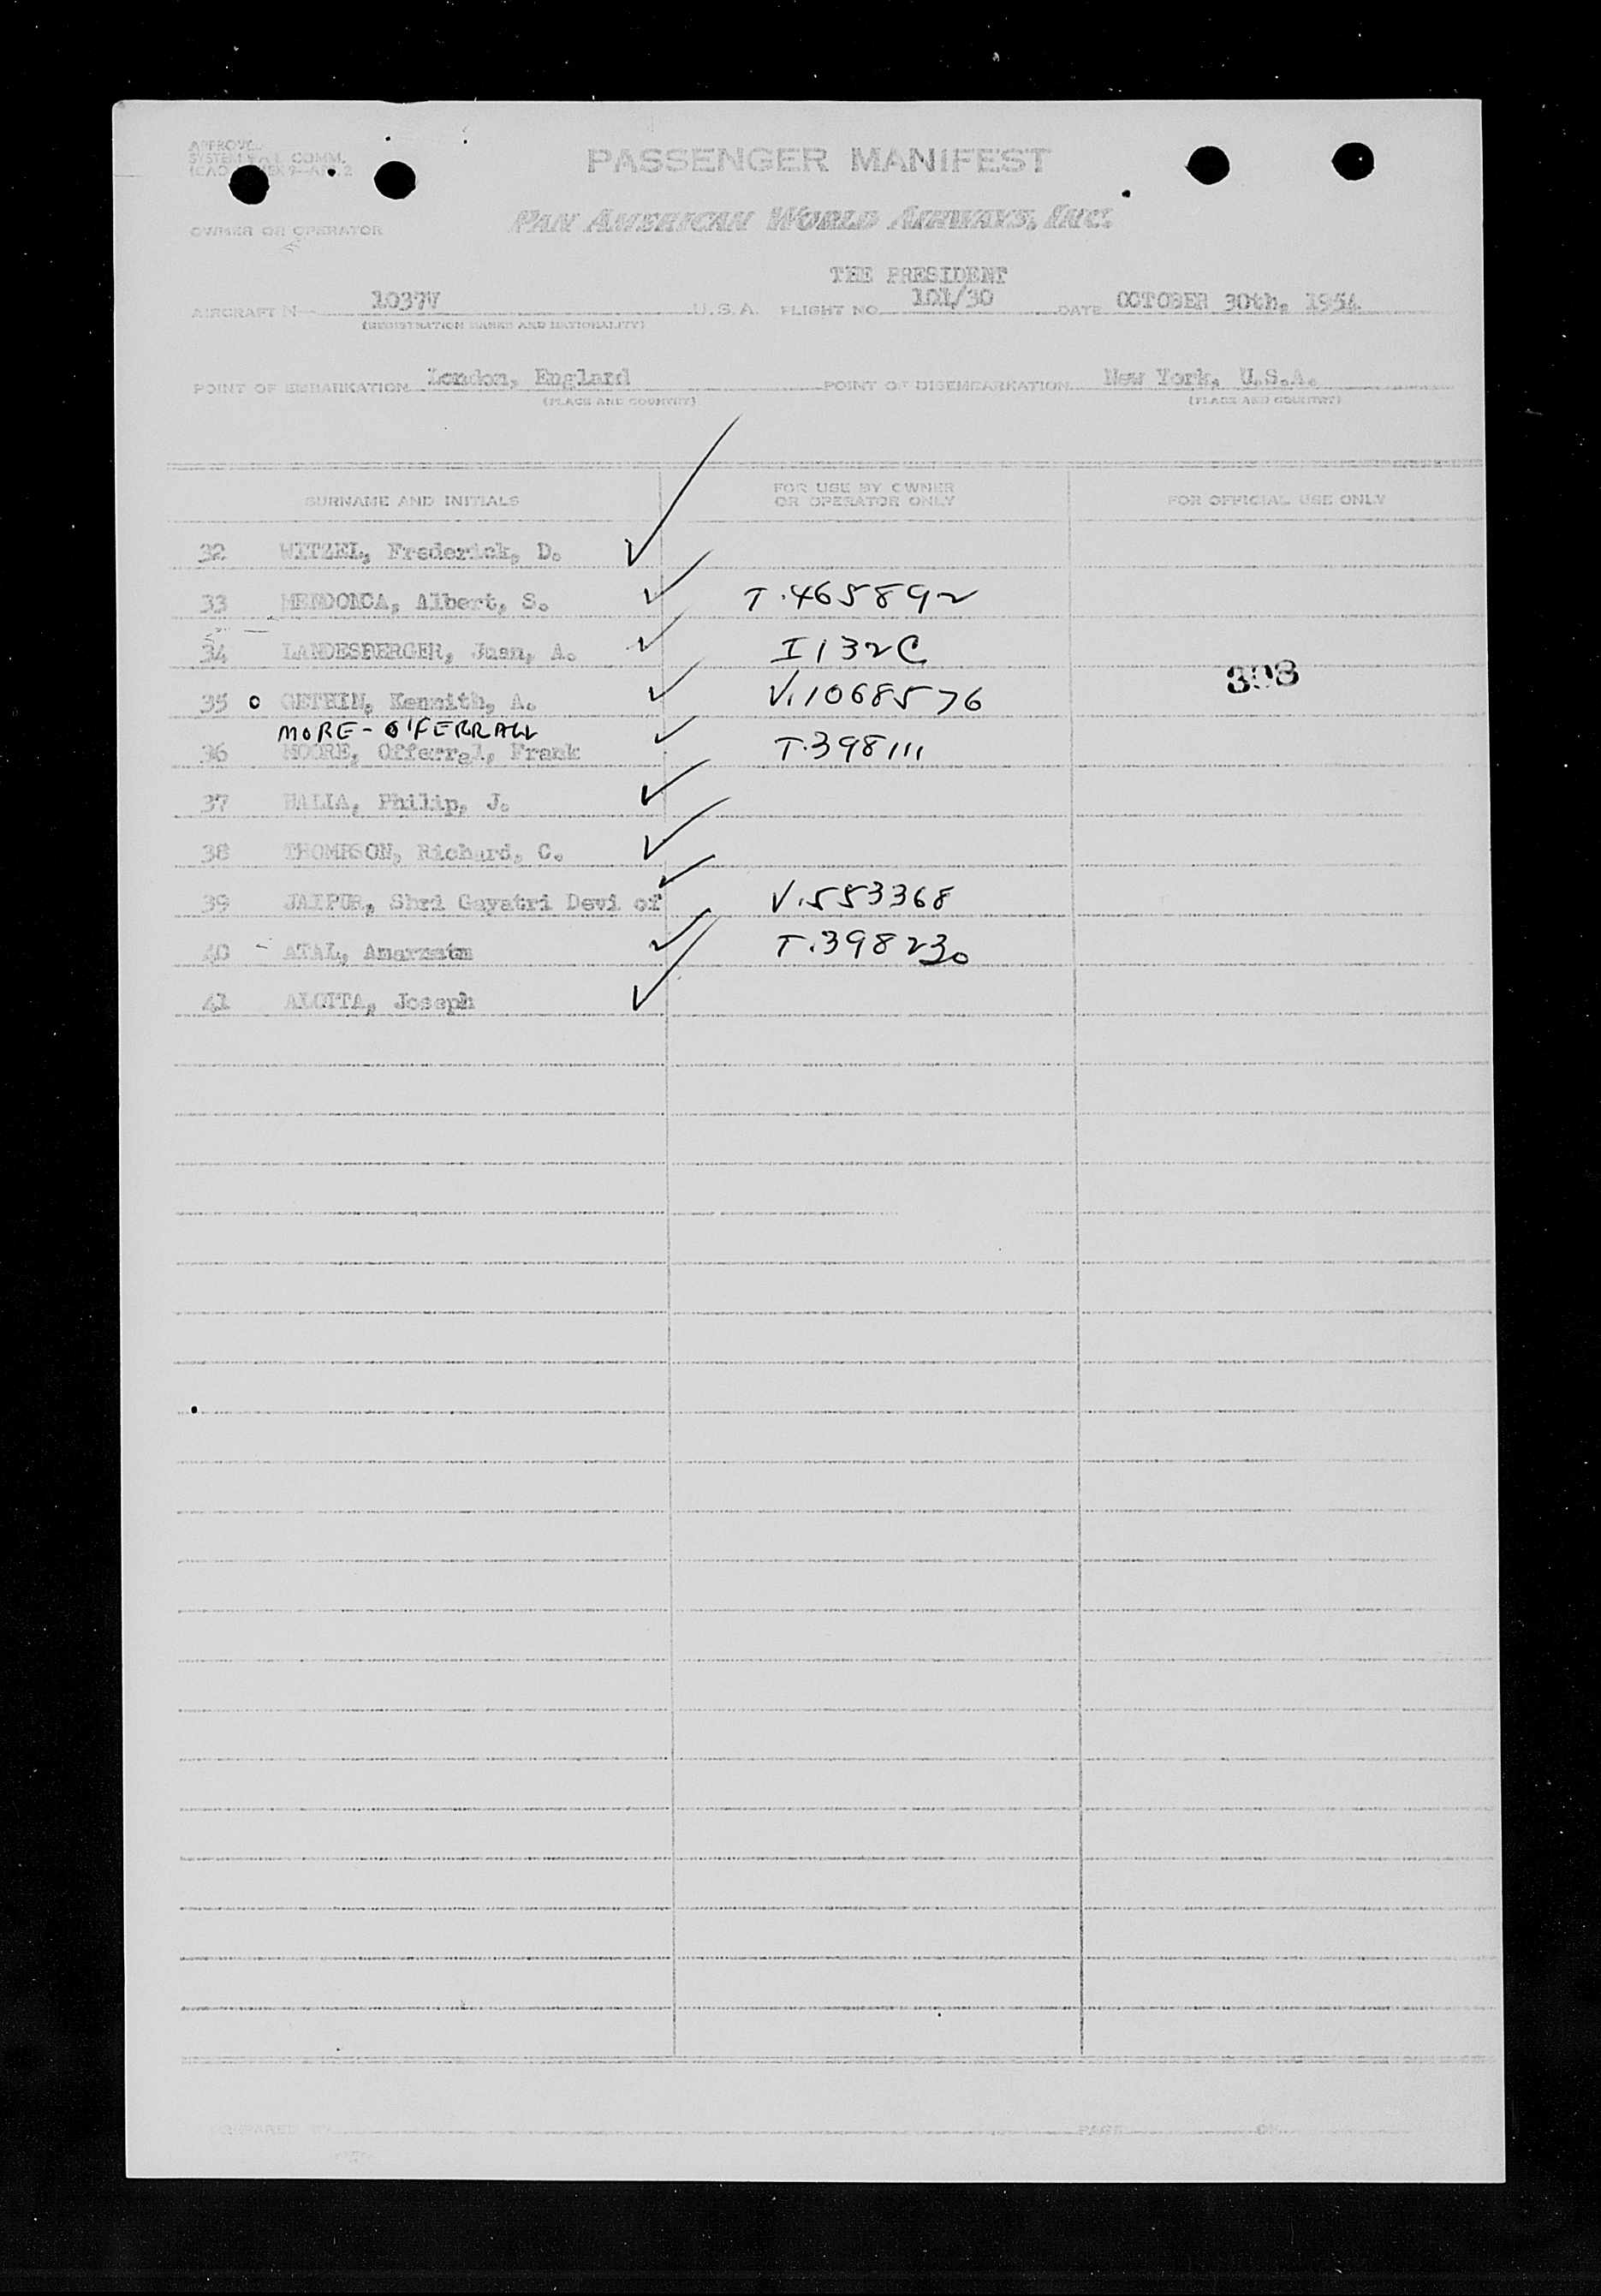 APPROVE
SYSTEM COMM.
PASSENGER MANIFEST
OWNER OR OPERATOR
PAN AMERICAN WORLD AIRWAYS, INC.
THE PRESIDENT
AIRCRAFT N 1037V U.S.A. FLIGHT NO. 101/30 DATE OCTOBER 30th, 1954
(REGISTRATION MARKS AND NATIONALITY)
POINT OF EMBARKATION London, England POINT OF DISEMBARKATION New York, U.S.A.
(PLACE AND COUNTRY) (PLACE AND COUNTRY)
SURNAME AND INITIALS FOR USE BY OWNER OR OPERATOR ONLY FOR OFFICIAL USE ONLY
32 WITZEL, Frederick, D.
33 MENDONCA, Albert, S. T.465892
34 LANDESBERGER, Juan, A. I132C
35 GETHIN, Kennith, A. V.10685576 398
MORE-O'FERRALL
36 MOORE, Offerral, Frank T.398111
37 HALIA, Philip, J.
38 THOMPSON, Richard, C.
39 JAIPUR, Shri Gayatri Devi of V.553368
40 ATAL, T.398230
41 ALOITA, Joseph
PREPARED BY PAGE OF